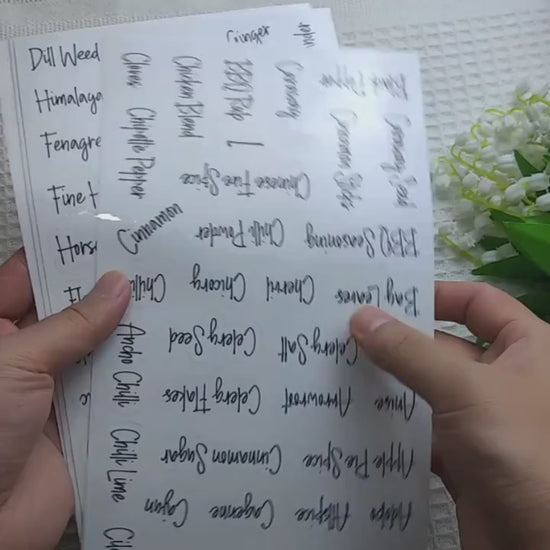 Dill Weed
Himalaya
Fenugre
Fine H
Hors
Ginger
Cloves
Chicken Blend
BBQ Rub
Caraway
Chipotle Pepper
Chinese Five Spice
Cinnamon
Chilli Powder
BBQ Seasoning
Chilli
Chicory
Chervil
Bay Leaves
Celery Seed
Celery Salt
Ancho Chilli
Celery Flakes
Arrowroot
Anise
Chilli Lime
Cinnamon Sugar
Apple Pie Spice
Cajun
Cayenne
Allspice
Adobo